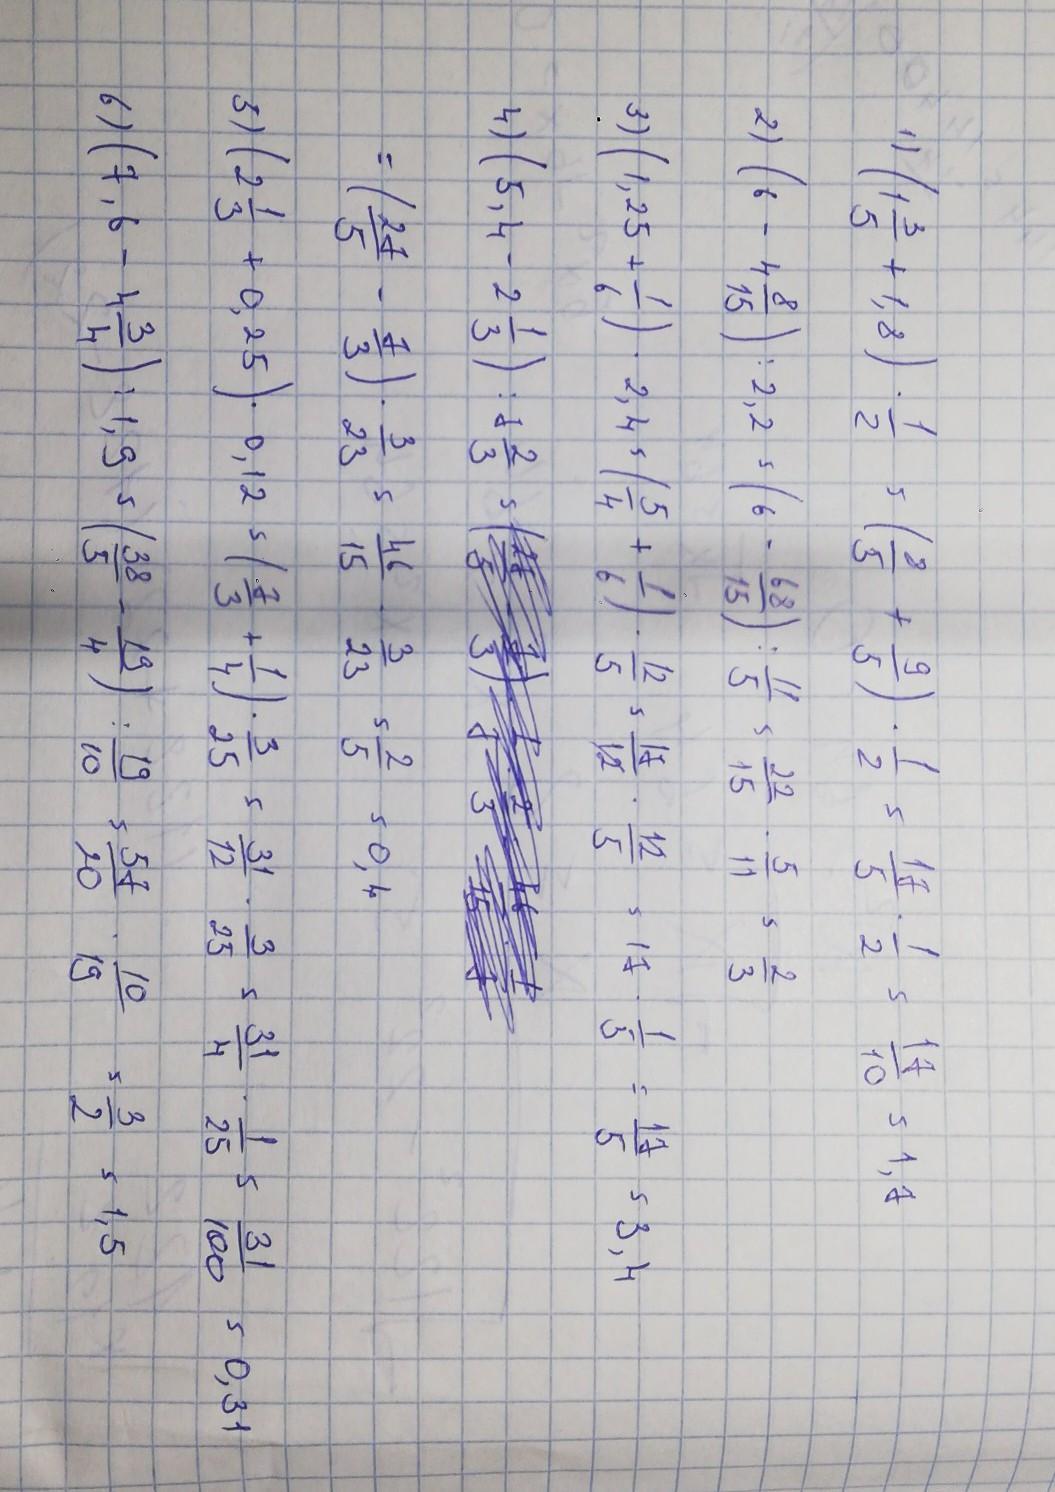 1) (1 3/5 + 1,8) · 1/2 = (8/5 + 9/5) · 1/2 = 17/5 · 1/2 = 17/10 = 1,7
2) (6 - 4 8/15) : 2,2 = (6 - 68/15) : 11/5 = 22/15 · 5/11 = 2/3
3) (1,25 + 1/6) · 2,4 = (5/4 + 1/6) · 12/5 = 17/12 · 12/5 = 17 · 1/5 = 17/5 = 3,4
4) (5,4 - 2 1/3) : 2/3 =
= (27/5 - 7/3) · 3/23 = 46/15 · 3/23 = 2/5 = 0,4
5) (2 1/3 + 0,25) · 0,12 = (7/3 + 1/4) · 3/25 = 31/12 · 3/25 = 31/4 · 1/25 = 31/100 = 0,31
6) (7,6 - 4 3/4) : 1,9 = (38/5 - 19/4) : 19/10 = 57/20 · 10/19 = 3/2 = 1,5